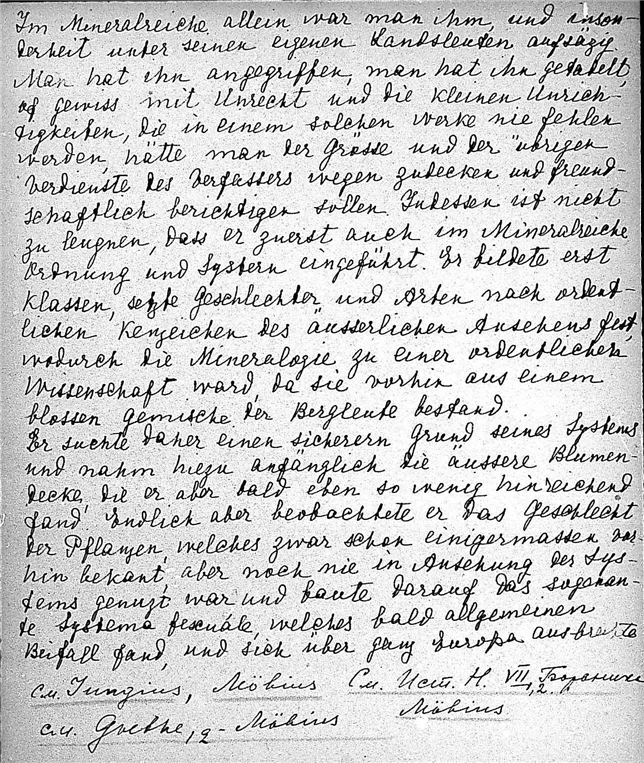 Im Mineralreiche allein war man ihm und inson-
derheit unter seinen eigenen Landsleuten aufsäzig.
Man hat ihn angegriffen, man hat ihn getadelt,
gewiss mit Unrecht und die kleinen Unrich-
tigkeiten, die in einem solchen werke nie fehlen
werden, hätte man der Grösse und der übrigen
Verdienste des Verfassers wegen zudecken und freund-
schaftlich berichtigen sollen. Indessen ist nicht
zu leugnen, dass er zuerst auch im Mineralreiche
Ordnung und System eingeführt. Er bildete erst
Klassen, setzte Geschlechter und Arten nach ordent-
lichen Kenzeichen des äusserlichen Ansehens fest,
wodurch die Mineralogie zu einer ordentlichen
Wissenschaft ward, da sie vorhin aus einem
blossen gemische der Bergleute bestand.
Er suchte daher einen sicherern Grund seines Systems
und nahm hiezu anfänglich die äussere Blumen-
decke, die er aber bald eben so wenig hinreichend
fand. Endlich aber beobachtete er das Geschlecht
der Pflanzen, welches zwar schon einigermassen vor-
hin bekant, aber noch nie in Ansehung des Sys-
tems genuzt war und baute darauf das sogenan-
te Systema sexuale, welches bald allgemeinen
Beifall fand, und sich über ganz Europa ausbreitete
см. Jungius, Möbius См. Ист. Н. VII, 2.
Möbius
см. Goethe, 2 - Möbius